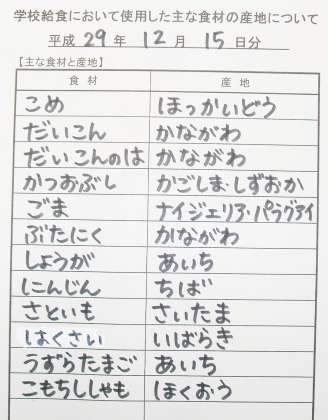 学校給食において使用した主な食材の産地について
平成 29 年 12 月 15 日分
【主な食材と産地】
食材 産地
こめ ほっかいどう
だいこん かながわ
だいこんのは かながわ
かつおぶし かごしま・しずおか
ごま ナイジェリア・パラグアイ
ぶたにく かながわ
しょうが あいち
にんじん ちば
さといも さいたま
はくさい いばらき
うずらたまご あいち
こもちししゃも ほくおう